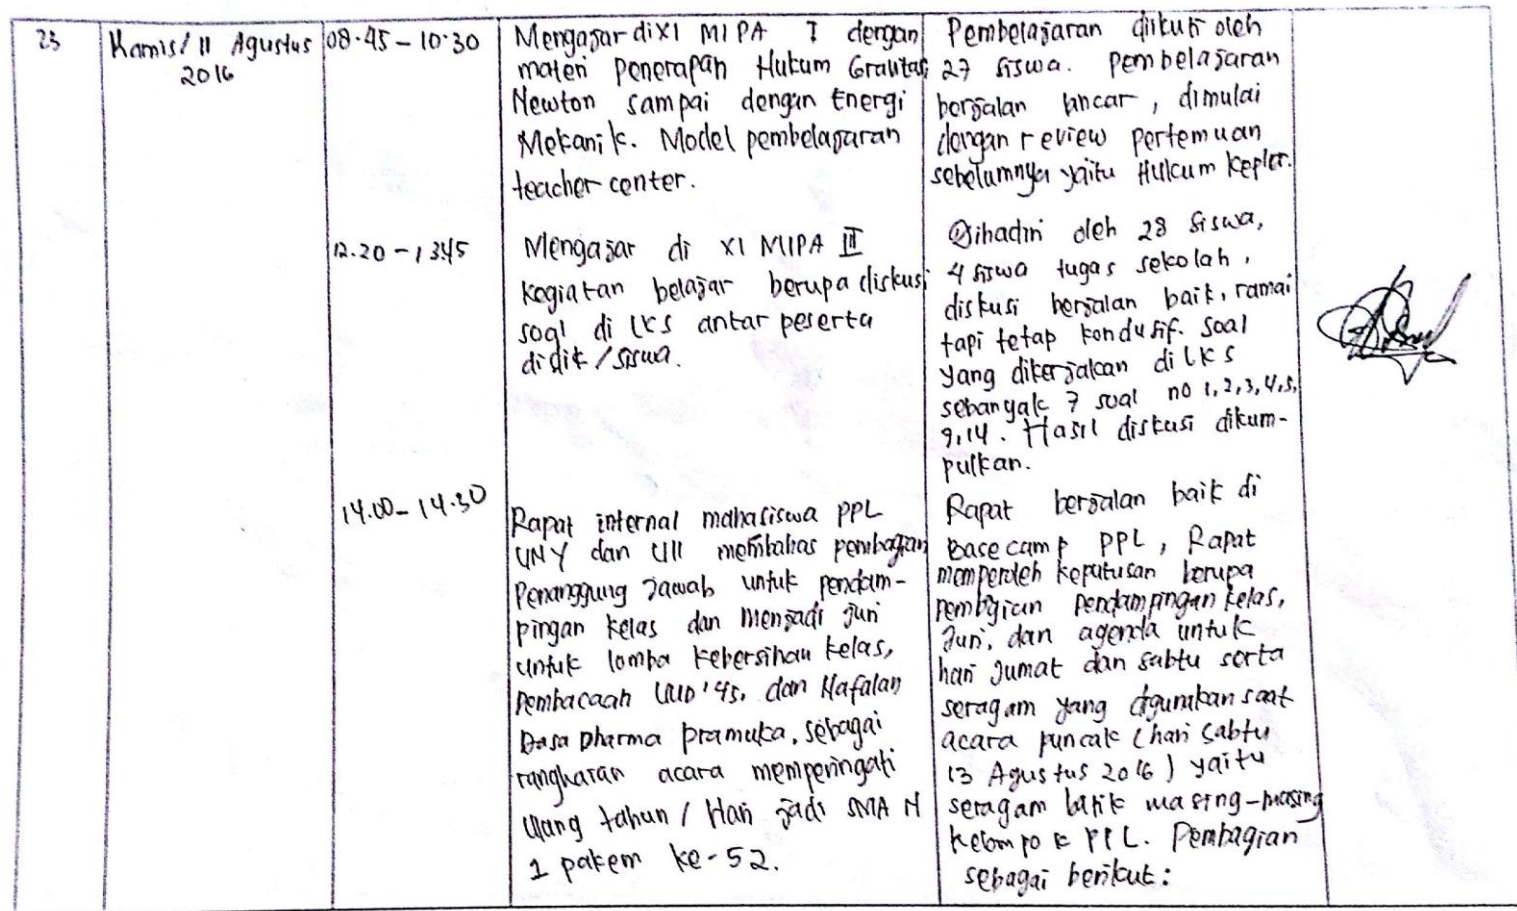 23
Kamis/ 11 Agustus
2016
08.45 – 10.30
Mengajar di XI MIPA I dengan
materi Penerapan Hukum Gravitasi
Newton sampai dengan Energi
Mekanik. Model pembelajaran
teacher center.
Pembelajaran diikuti oleh
27 siswa. Pembelajaran
berjalan lancar, dimulai
dengan review pertemuan
sebelumnya yaitu Hukum Kepler.
12.20 – 13.45
Mengajar di XI MIPA III
kegiatan belajar berupa diskusi
soal di LKS antar peserta
didik / siswa.
Dihadiri oleh 28 siswa,
4 siswa tugas sekolah,
diskusi berjalan baik, ramai
tapi tetap kondusif. soal
yang dikerjakan di LKS
sebanyak 7 soal no 1,2,3,4,5,
9,14. Hasil diskusi dikum-
pulkan.
14.00 – 14.30
Rapat internal mahasiswa PPL
UNY dan UII membahas pembagian
Penanggung Jawab untuk pendam-
pingan kelas dan menjadi juri
untuk lomba kebersihan kelas,
Pembacaan UUD '45, dan Hafalan
Dasa Dharma Pramuka, sebagai
rangkaian acara memperingati
Ulang tahun / Hari jadi SMA N
1 Pakem ke-52.
Rapat berjalan baik di
Basecamp PPL, Rapat
memperoleh keputusan berupa
pembagian pendampingan kelas,
Juri, dan agenda untuk
hari Jumat dan sabtu serta
seragam yang digunakan saat
acara puncak (hari sabtu
13 Agustus 2016) yaitu
seragam batik masing-masing
kelompok PPL. Pembagian
sebagai berikut: